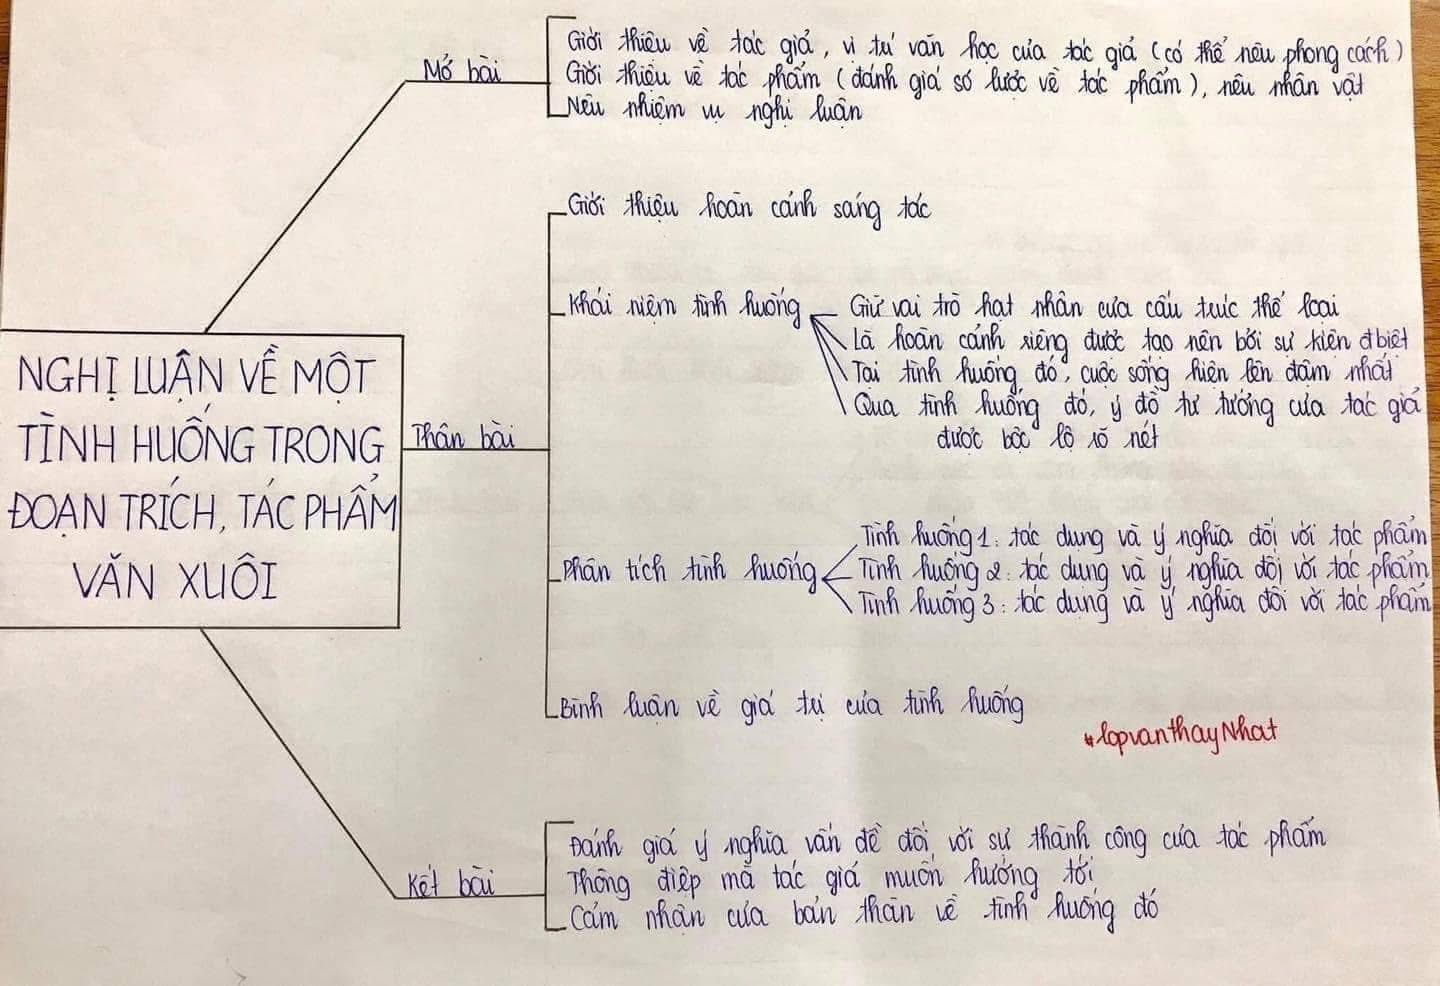 Mở bài
Giới thiệu về tác giả, vị trí văn học của tác giả (có thể nêu phong cách)
Giới thiệu về tác phẩm (đánh giá sơ lược về tác phẩm), nêu nhân vật
Nêu nhiệm vụ nghị luận
NGHỊ LUẬN VỀ MỘT
TÌNH HUỐNG TRONG
ĐOẠN TRÍCH, TÁC PHẨM
VĂN XUÔI
Thân bài
Giới thiệu hoàn cảnh sáng tác
Khái niệm tình huống
Giữ vai trò hạt nhân của cấu trúc thể loại
Là hoàn cảnh riêng được tạo nên bởi sự kiện đbiệt
Tại tình huống đó, cuộc sống hiện lên đậm nhất
Qua tình huống đó, ý đồ tư tưởng của tác giả
được bộc lộ rõ nét
Phân tích tình huống
Tình huống 1: tác dụng và ý nghĩa đối với tác phẩm
Tình huống 2: tác dụng và ý nghĩa đối với tác phẩm
Tình huống 3: tác dụng và ý nghĩa đối với tác phẩm
Bình luận về giá trị của tình huống
#lopvanthayNhat
Kết bài
Đánh giá ý nghĩa vấn đề đối với sự thành công của tác phẩm
Thông điệp mà tác giả muốn hướng tới
Cảm nhận của bản thân về tình huống đó